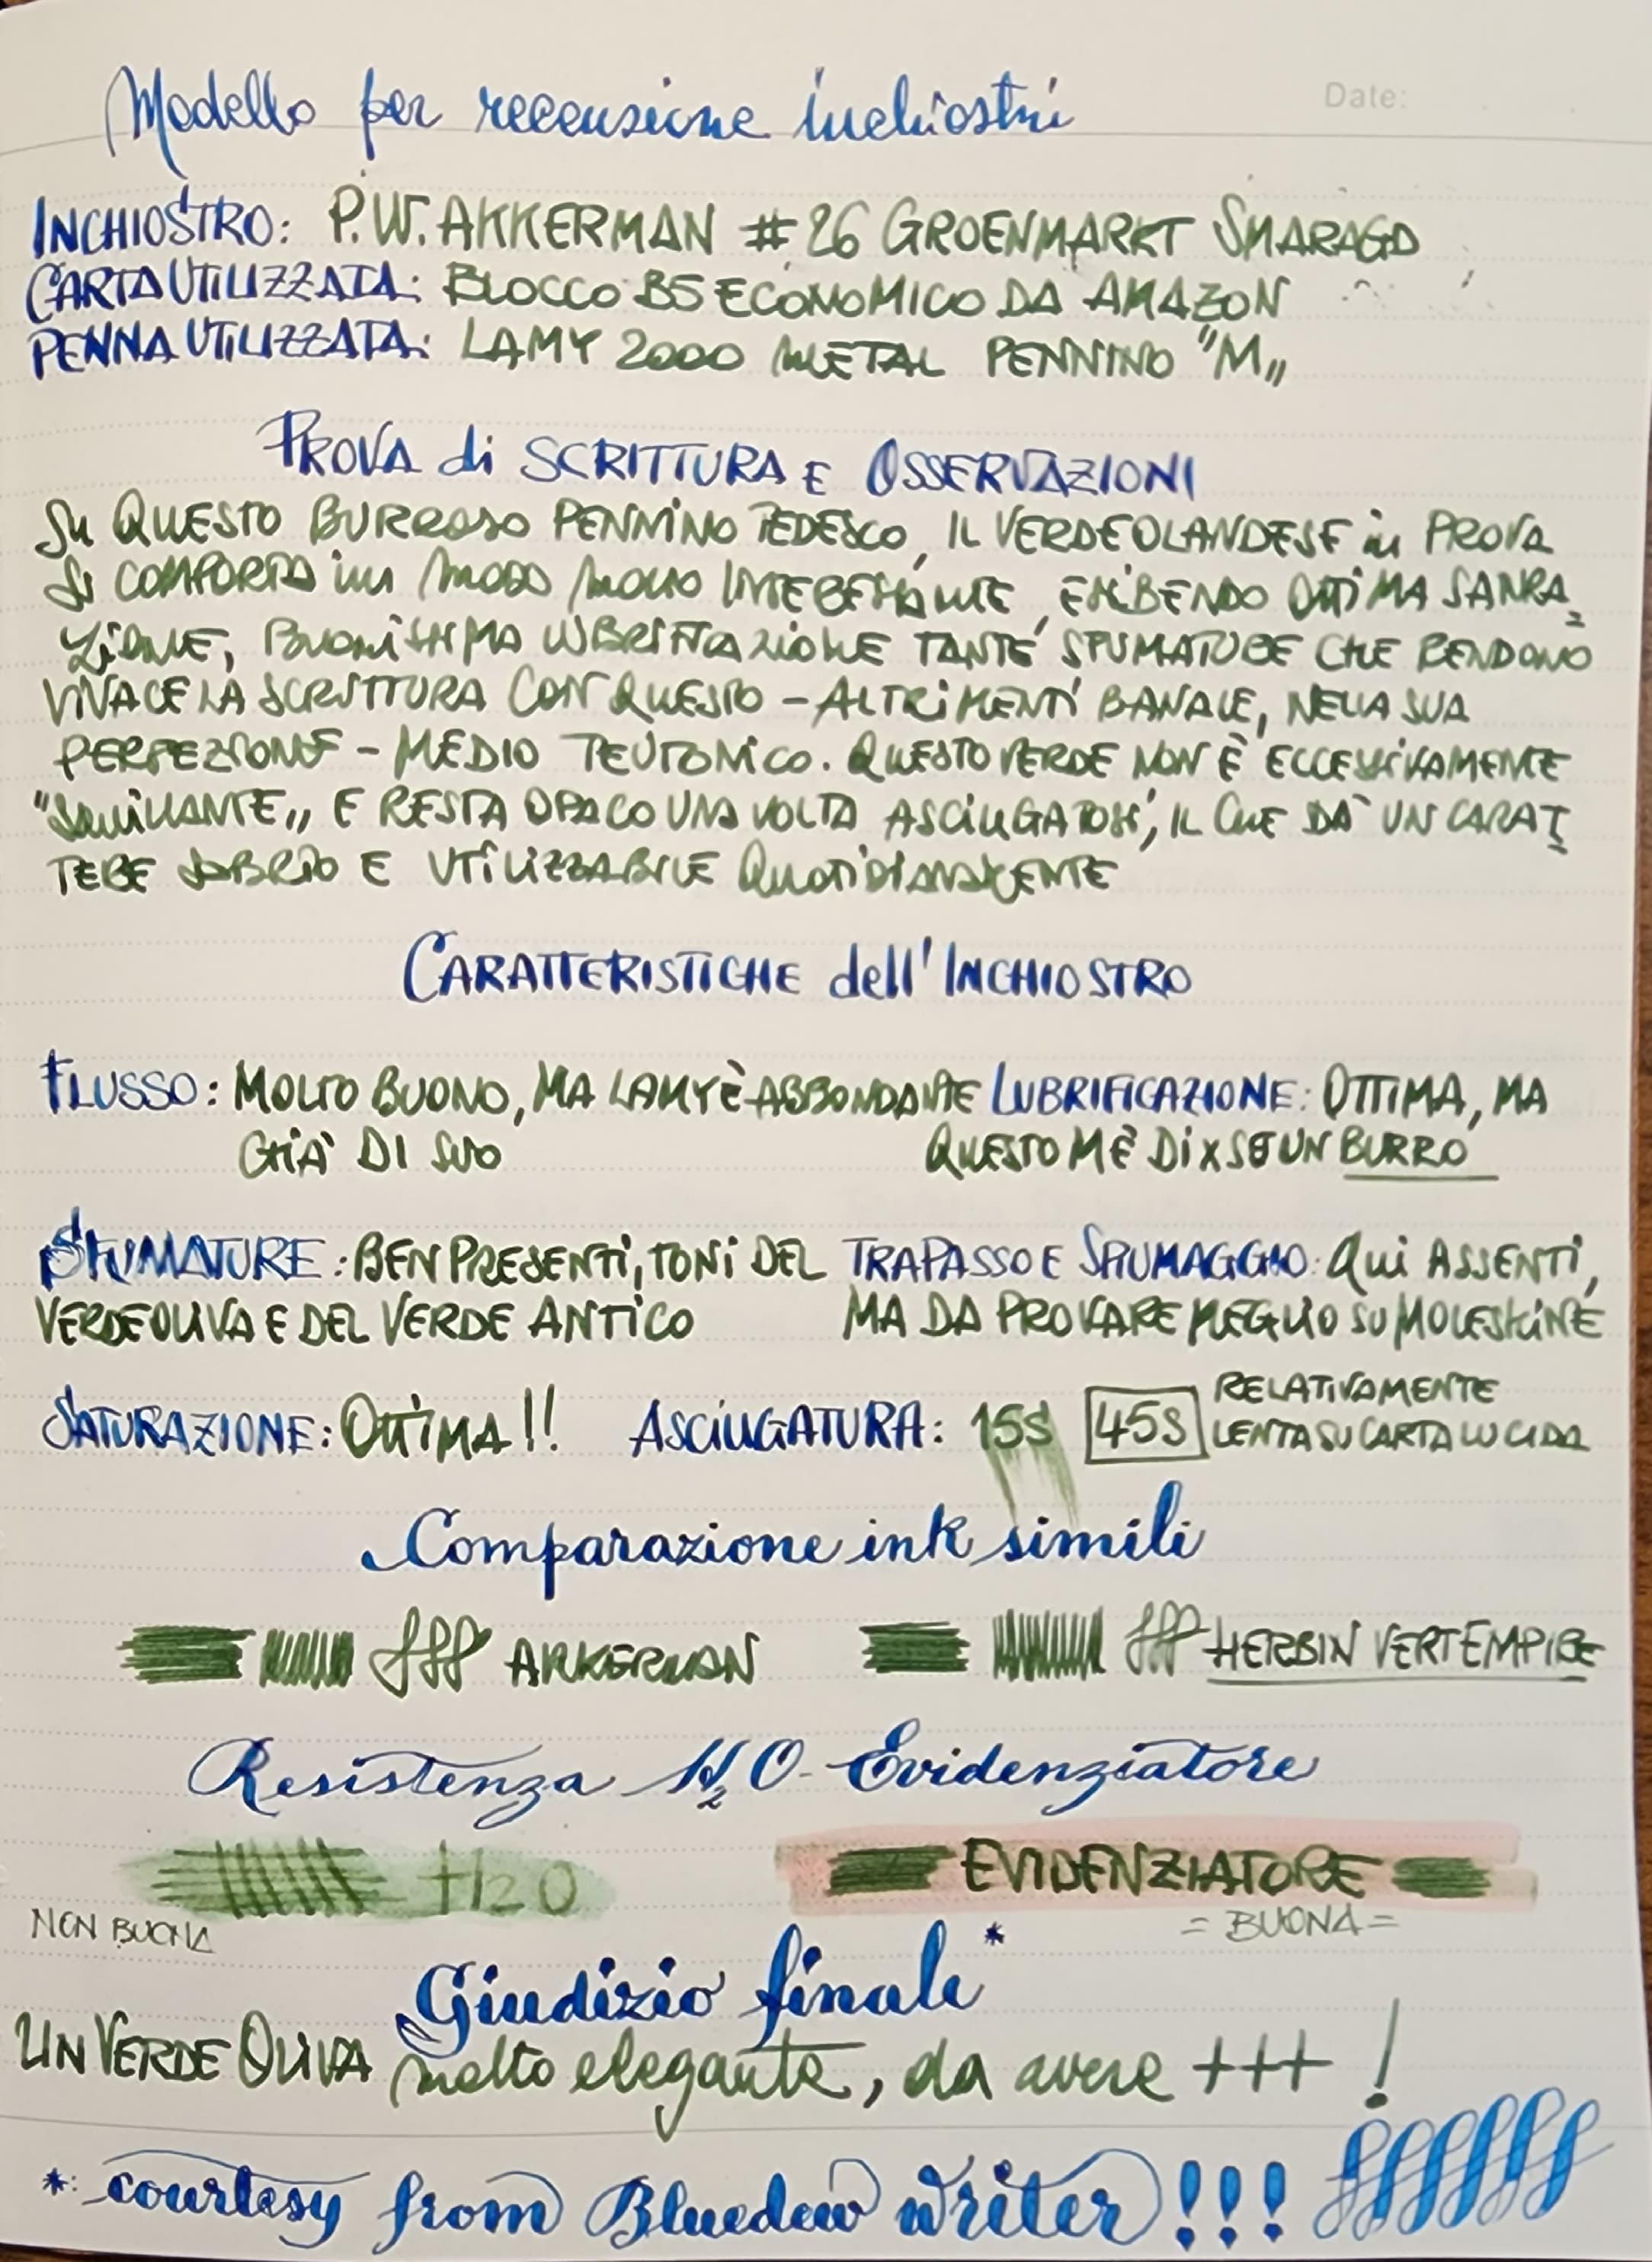 Modello per recensione inchiostri
Date:
INCHIOSTRO: P.W. AKKERMAN #26 GROENMARKT SMARAGD
CARTA UTILIZZATA: BLOCCO B5 ECONOMICO DA AMAZON
PENNA UTILIZZATA: LAMY 2000 METAL PENNINO "M"
PROVA di SCRITTURA E OSSERVAZIONI
SU QUESTO BURROSO PENNINO TEDESCO, IL VERDE OLANDESE in PROVA
SI COMPORTA in MODO MOLTO INTERESSANTE, ESIBENDO OTTIMA SATURA
ZIONE, BUONISSIMA LUBRIFICAZIONE TANTE SFUMATURE CHE RENDONO
VIVACE LA SCRITTURA CON QUESTO - ALTRIMENTI BANALE, NELLA SUA
PERFEZIONE - MEDIO TEUTONICO. QUESTO VERDE NON È ECCESSIVAMENTE
"SQUILLANTE" E RESTA OPACO UNA VOLTA ASCIUGATOSI, IL CHE DÀ UN CARAT
TERE SOBRIO E UTILIZZABILE QUOTIDIANAMENTE
CARATTERISTICHE dell'INCHIOSTRO
FLUSSO: MOLTO BUONO, MA LAMY È ABBONDANTE LUBRIFICAZIONE: OTTIMA, MA
GIÀ DI SUO QUESTO M È DI X SÉ UN BURRO
SFUMATURE: BEN PRESENTI, TONI DEL TRAPASSO E SPIUMAGGIO: QUI ASSENTI,
VERDE OLIVA E DEL VERDE ANTICO MA DA PROVARE MEGLIO SU MOLESKINE
SATURAZIONE: OTTIMA!! ASCIUGATURA: 15S 45S RELATIVAMENTE
LENTA SU CARTA LUCIDA
Comparazione ink simili
AKKERMAN HERBIN VERT EMPIRE
Resistenza H2O - Evidenziatore
H2O EVIDENZIATORE
NON BUONA = BUONA =
Giudizio finale*
UN VERDE OLIVA molto elegante, da avere +++!
*: courtesy from Bluedew writer!!!